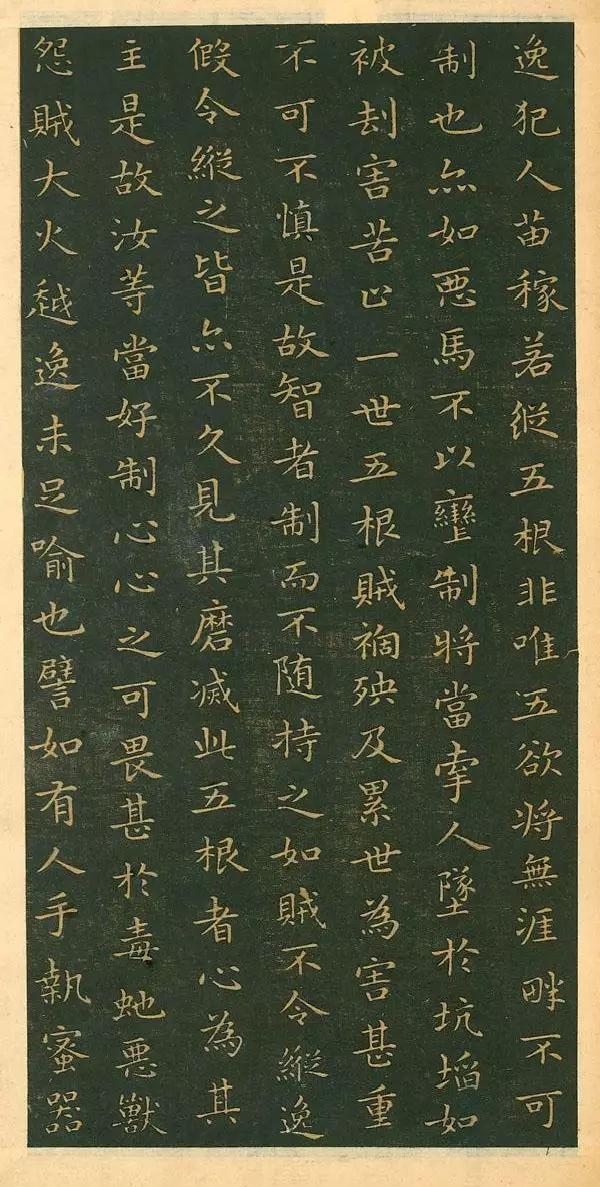 逸犯人苗稼若縱五根非唯五欲将無涯畔不可
制也亦如悪馬不以轡制將當牽人墜於坑埳如
被刦害苦止一世五根賊禍殃及累世為害甚重
不可不慎是故智者制而不随持之如賊不令縱逸
假令縱之皆亦不久見其磨滅此五根者心為其
主是故汝等當好制心心之可畏甚於毒虵悪獸
怨賊大火越逸未足喻也譬如有人手執蜜器